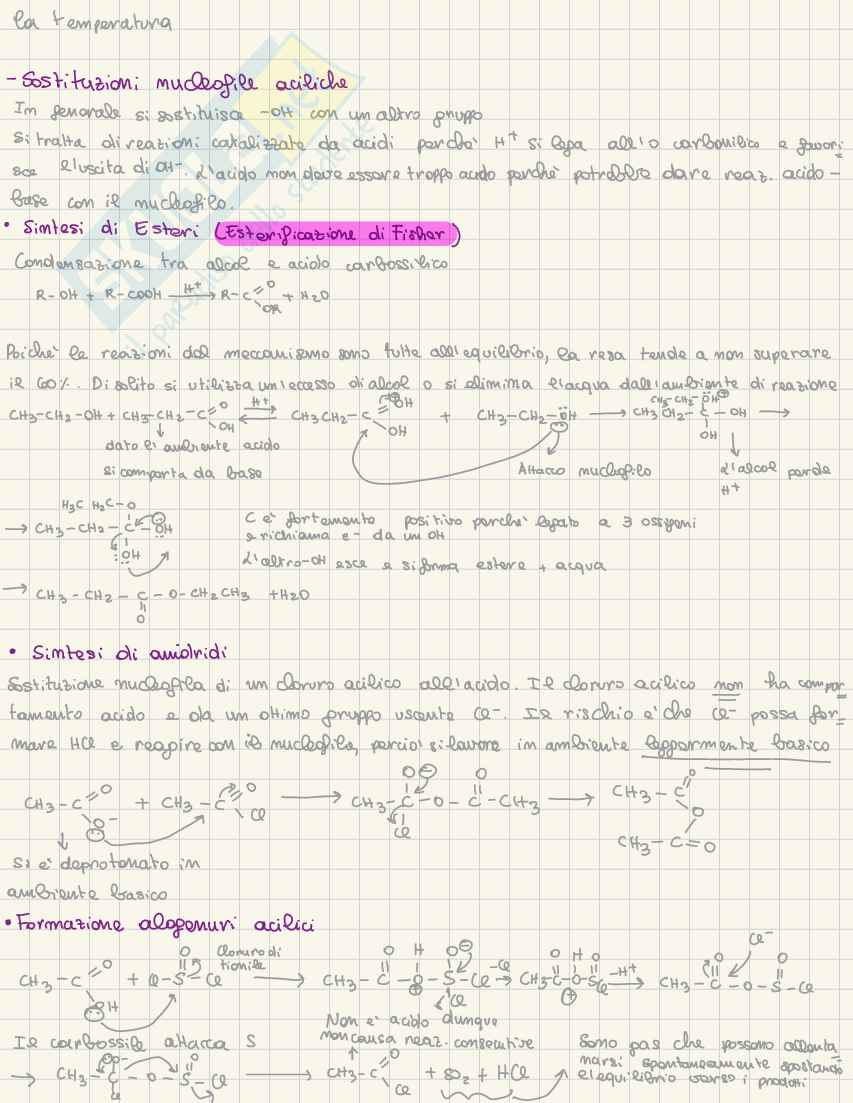 la temperatura
- Sostituzioni nucleofile aciliche
In generale si sostituisce -OH con un altro gruppo
si tratta di reazioni catalizzate da acidi perché H⁺ si lega all'O carbonilico e favori
sce l'uscita di OH⁻. L'acido non deve essere troppo acido perché potrebbe dare reaz. acido-
base con il nucleofilo.
• Sintesi di Esteri (Esterificazione di Fisher)
Condensazione tra alcol e acido carbossilico
R-OH + R-COOH —H⁺→ R-C=O OR + H₂O
Poiché le reazioni del meccanismo sono tutte all'equilibrio, la resa tende a non superare
il 60%. Di solito si utilizza un'eccesso di alcol o si elimina l'acqua dall'ambiente di reazione
CH₃-CH₂-OH + CH₃-CH₂-C=O OH ⇌ H⁺ CH₃CH₂-C=OH OH + CH₃-CH₂-ÖH → CH₃-CH₂-ÖH⁺ CH₃CH₂-C-OH OH →
dato l'ambiente acido
si comporta da base
Attacco nucleofilo
L'alcol perde
H⁺
→ H₃C H₂C-O CH₃-CH₂-C-OH :OH
C è fortemente positivo perché legato a 3 ossigeni
e richiama e- da un OH
L'altro-OH esce e si forma estere + acqua
→ CH₃-CH₂-C-O-CH₂CH₃ + H₂O
O
• Sintesi di anidridi
Sostituzione nucleofila di un cloruro acilico all'acido. Il cloruro acilico non ha compor
tamento acido e dà un ottimo gruppo uscente Cl⁻. Il rischio è che Cl⁻ possa for
mare HCl e reagire con il nucleofilo, perciò si lavora in ambiente leggermente basico
CH₃-C=O O⁻ + CH₃-C=O Cl → CH₃-C(O⁻)(Cl)-O-C(=O)-CH₃ → CH₃-C=O O CH₃-C=O
Si è deprotonato in
ambiente basico
• Formazione alogenuri acilici
CH₃-C=O OH + Cl-S(=O)-Cl Cloruro di tionile → CH₃-C(=O)-O⁺(H)-S(O⁻)(Cl)-Cl —-Cl→ CH₃C(=O)-O⁺(H)-S(=O)Cl —-H⁺→ CH₃-C(=O)-O-S(=O)-Cl Cl⁻
Il carbossile attacca S
Non è acido dunque
non causa reaz. consecutive
Sono gas che possono allonta
narsi spontaneamente spostando
l'equilibrio verso i prodotti
→ CH₃-C(O⁻)(Cl)-O-S(=O)-Cl → CH₃-C=O Cl + SO₂ + HCl